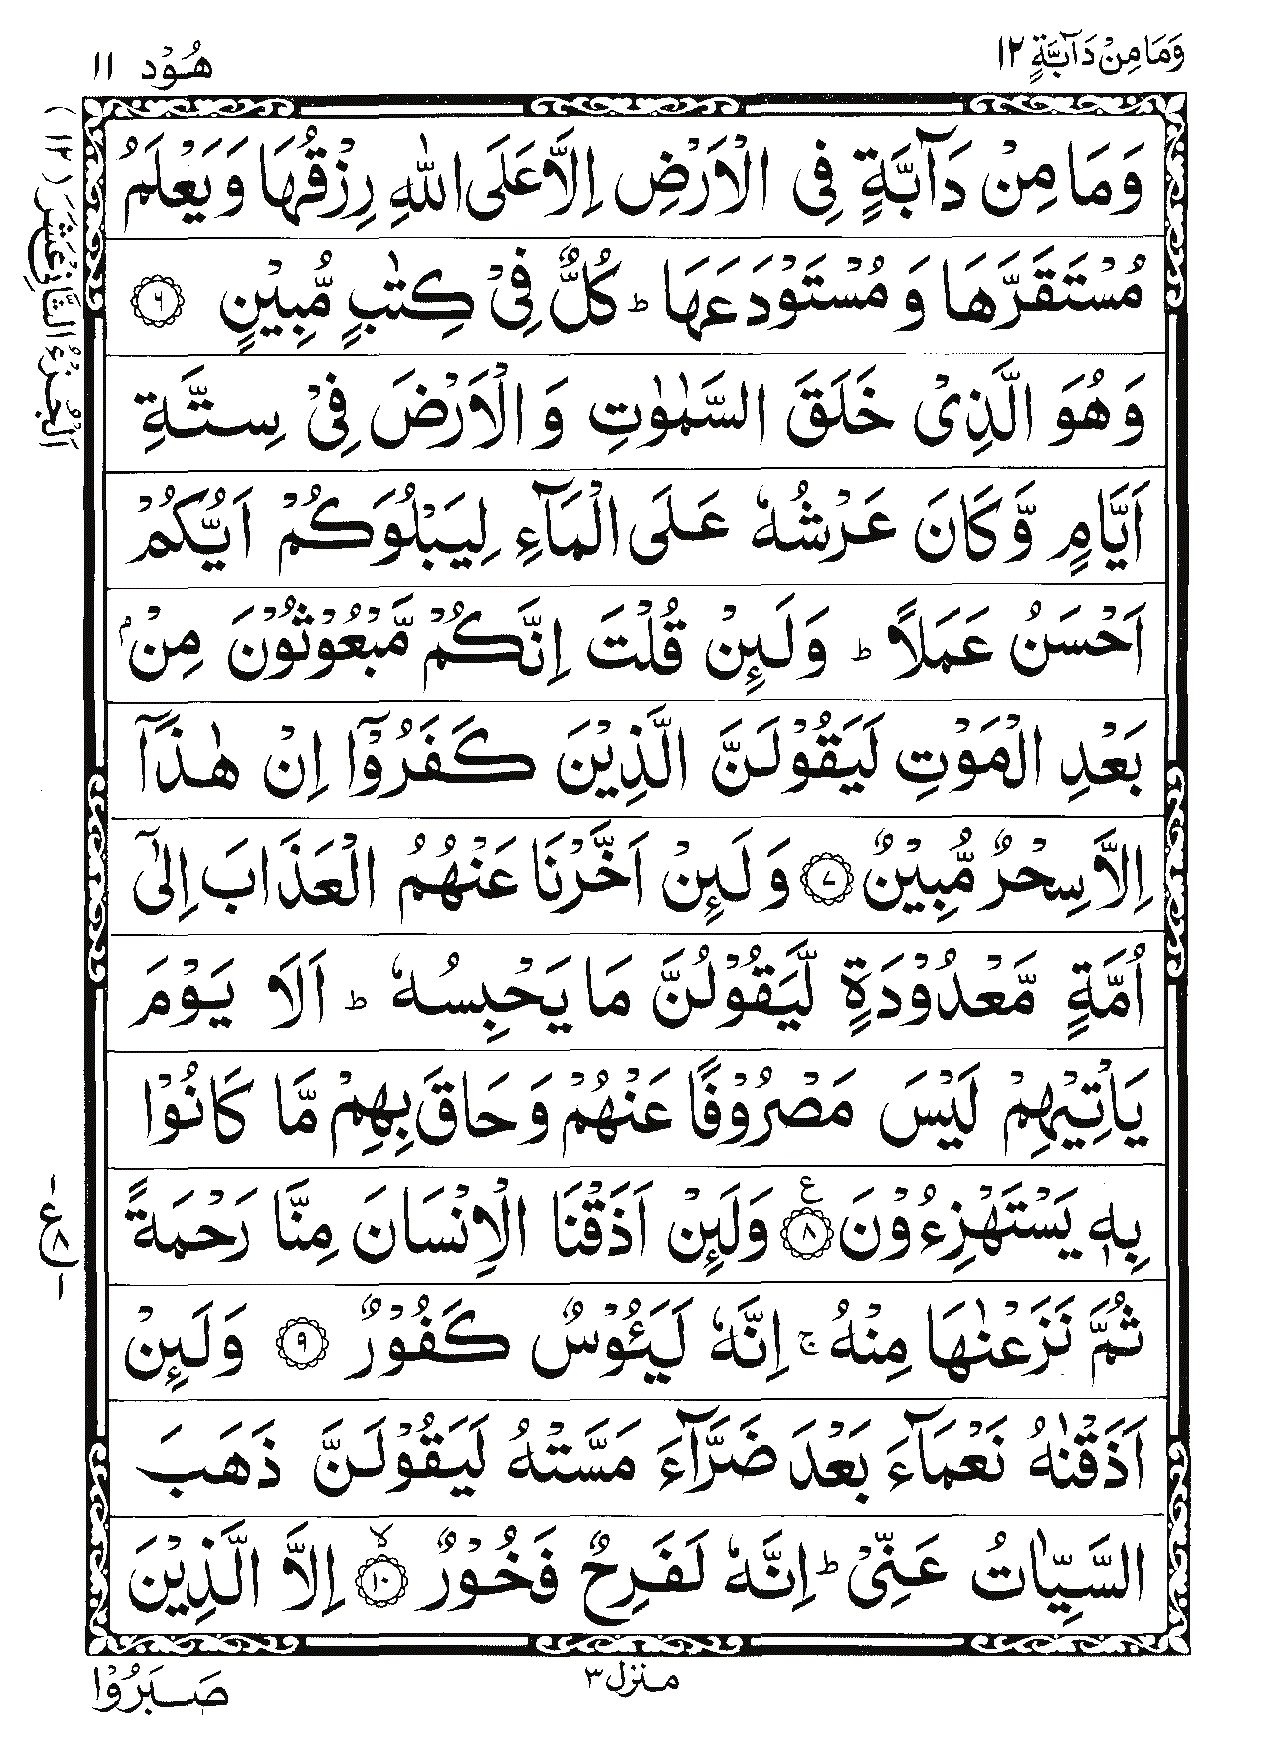 وَمَا مِنْ دَآبَّةٍ ١٢
هُوْد ١١
اَلْجُزْءُ الثَّانِیْ عَشَرَ (١٢)
وَمَا مِنْ دَآبَّةٍ فِی الْاَرْضِ اِلَّا عَلَی اللّٰهِ رِزْقُهَا وَيَعْلَمُ
مُسْتَقَرَّهَا وَ مُسْتَوْدَعَهَا ؕ كُلٌّ فِیْ كِتٰبٍ مُّبِيْنٍ ۝٦
وَهُوَ الَّذِیْ خَلَقَ السَّمٰوٰتِ وَ الْاَرْضَ فِیْ سِتَّةِ
اَيَّامٍ وَّ كَانَ عَرْشُهٗ عَلَی الْمَآءِ لِيَبْلُوَكُمْ اَيُّكُمْ
اَحْسَنُ عَمَلًا ؕ وَلَئِنْ قُلْتَ اِنَّكُمْ مَّبْعُوْثُوْنَ مِنْۢ
بَعْدِ الْمَوْتِ لَيَقُوْلَنَّ الَّذِيْنَ كَفَرُوْۤا اِنْ هٰذَاۤ
اِلَّا سِحْرٌ مُّبِيْنٌ ۝٧ وَلَئِنْ اَخَّرْنَا عَنْهُمُ الْعَذَابَ اِلٰۤی
اُمَّةٍ مَّعْدُوْدَةٍ لَّيَقُوْلُنَّ مَا يَحْبِسُهٗ ؕ اَلَا يَوْمَ
يَاْتِيْهِمْ لَيْسَ مَصْرُوْفًا عَنْهُمْ وَحَاقَ بِهِمْ مَّا كَانُوْا
بِهٖ يَسْتَهْزِءُوْنَ ۝٨ ع وَلَئِنْ اَذَقْنَا الْاِنْسَانَ مِنَّا رَحْمَةً
ثُمَّ نَزَعْنٰهَا مِنْهُ ۚ اِنَّهٗ لَيَئُوْسٌ كَفُوْرٌ ۝٩ وَلَئِنْ
اَذَقْنٰهُ نَعْمَآءَ بَعْدَ ضَرَّآءَ مَسَّتْهُ لَيَقُوْلَنَّ ذَهَبَ
السَّيِّاٰتُ عَنِّیْ ؕ اِنَّهٗ لَفَرِحٌ فَخُوْرٌ ۝١٠ ۙ اِلَّا الَّذِيْنَ
ع ٨
منزل ٣
صَبَرُوْا